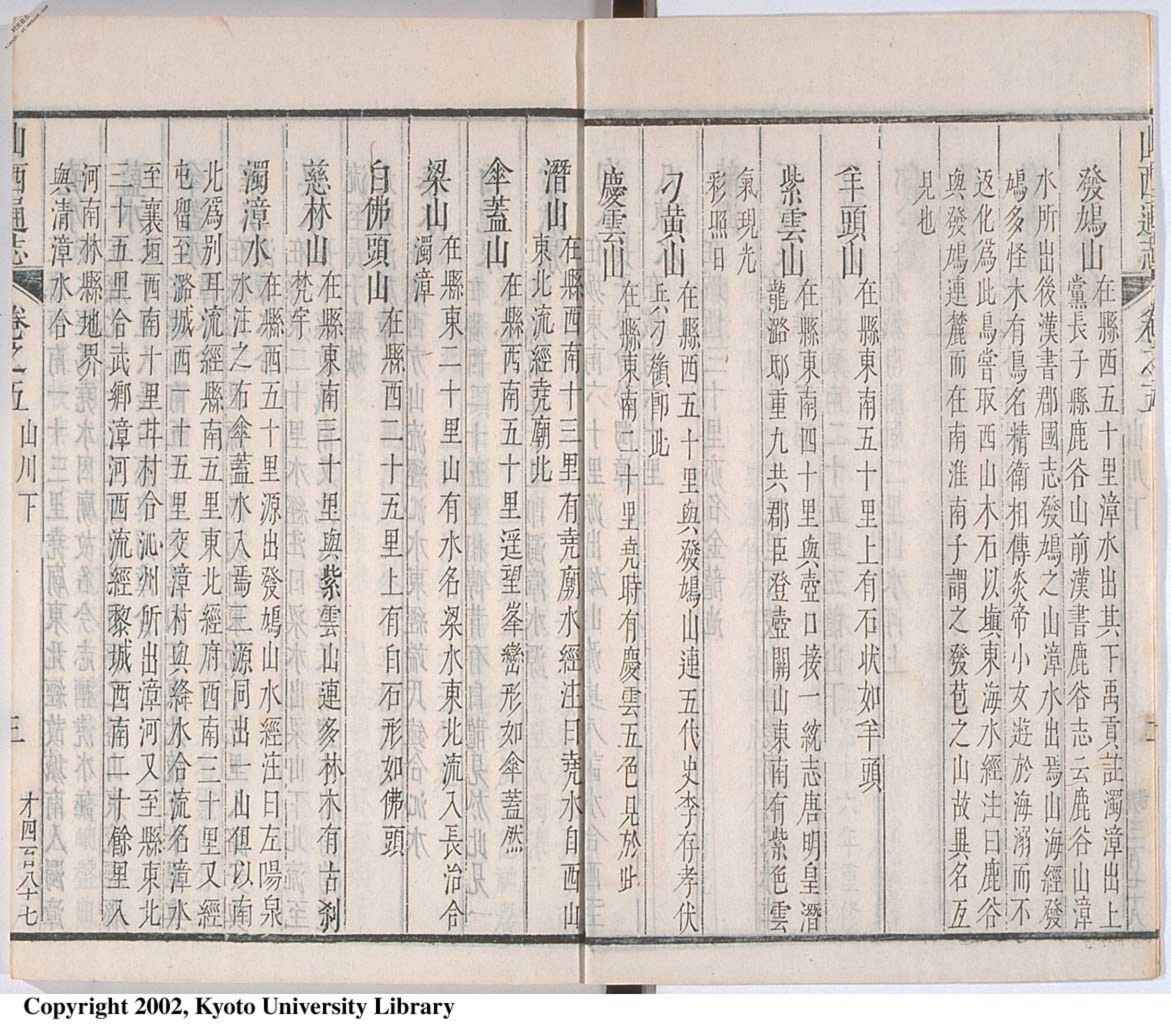 發鳩山
在縣西五十里漳水出其下禹貢註濁漳出上
黨長子縣鹿谷山前漢書鹿谷志云鹿谷山漳
水所出後漢書郡國志發鳩之山漳水出焉山海經發
鳩多怪木有鳥名精衛相傳炎帝小女遊於海溺而不
返化爲此鳥嘗取西山木石以塡東海水經注曰鹿谷
與發鳩連麓而在南淮南子謂之發苞之山故異名互
見也
羊頭山
在縣東南五十里上有石狀如羊頭
紫雲山
在縣東南四十里與壺口接一統志唐明皇潛
龍潞邸重九共郡臣登壺關山東南有紫色雲
氣現光
彩照日
刁黃山
在縣西五十里與發鳩山連五代史李存孝伏
兵刁黃嶺卽此
慶雲山
在縣東南二十里堯時有慶雲五色見於此
潛山
在縣西南十三里有堯廟水經注曰堯水自西山
東北流經堯廟北
傘蓋山
在縣西南五十里遥望峯巒形如傘蓋然
梁山
在縣東二十里山有水名梁水東北流入長治合
濁漳
白佛頭山
在縣西二十五里上有白石形如佛頭
慈林山
在縣東南三十里與紫雲山連多林木有古刹
梵宇
濁漳水
在縣西五十里源出發鳩山水經注曰左陽泉
水注之右傘蓋水入焉三源同出一山但以南
北爲别耳流經縣南五里東北經府西南三十里又經
屯留至潞城西一十五里交漳村與絳水合流名漳水
至襄垣西南十里井村合沁州所出漳河又至縣東北
三十五里合武鄉漳河西流經黎城西南二十餘里入
河南林縣地界
與清漳水合
山西通志
卷之五
山川下
三
才四百八十七